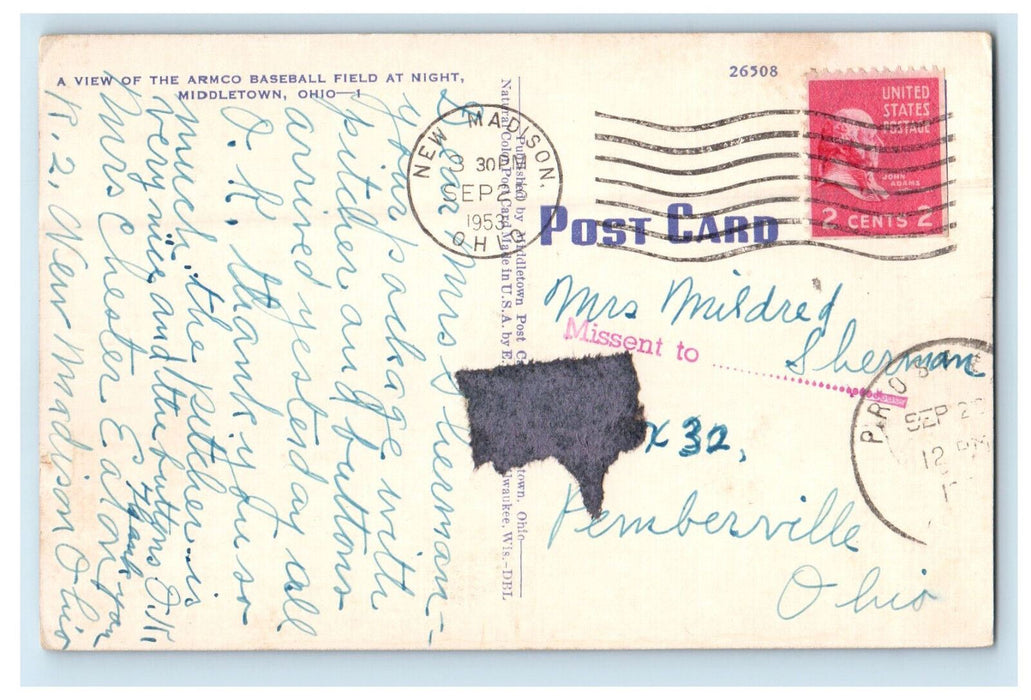 A VIEW OF THE ARMCO BASEBALL FIELD AT NIGHT,
MIDDLETOWN, OHIO—1
26508
UNITED
STATES
POSTAGE
JOHN
ADAMS
2 CENTS 2
NEW MADISON,
3 30PM
SEP
1953
OHIO
POST CARD
Published by Middletown Post
town, Ohio
Natural Color Post Card Made in U.S.A. by E.
lwaukee, Wis.—DBL
Dear Mrs Sherman—
your package with
pitcher and buttons
arrived yesterday all
O.K. thank you so
much, the pitcher is
very nice and the buttons
Thank you
Mrs Chester Eaton
R. 2, New Madison Ohio
Mrs Mildred
Sherman
Missent to
x 32,
Pemberville
Ohio
SEP
12 PM